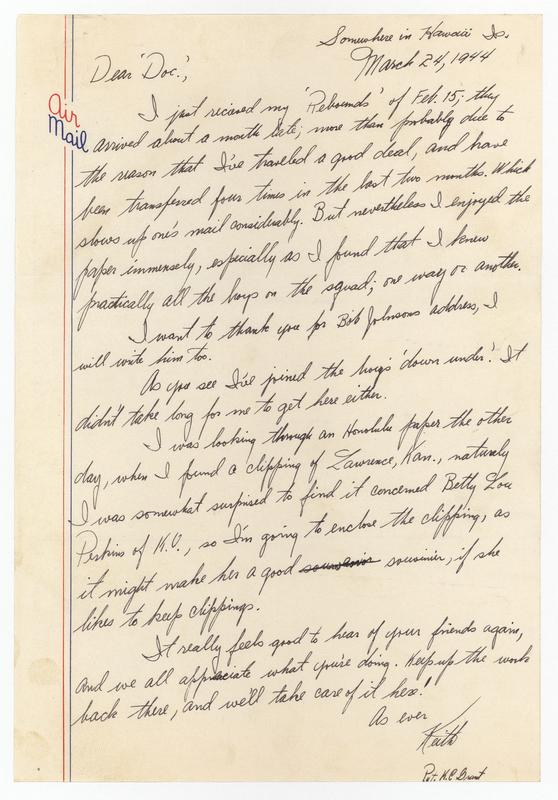 Somewhere in Hawaii Is.
March 24, 1944
Dear "Doc",
Air
Mail
I just recieved my 'Rebounds' of Feb. 15; they
arrived about a month late; more than probably due to
the reason that I've traveled a good deal, and have
been transfered four times in the last two months. Which
slows up one's mail considerably. But nevertheless I enjoyed the
paper immensely, especially as I found that I knew
practically all the boys on the squad; one way or another.
I want to thank you for Bob Johnsons address, I
will write him too.
As you see I've joined the boys 'down under'. It
didn't take long for me to get here either.
I was looking through an Honolulu paper the other
day, when I found a clipping of Lawrence, Kan., naturally
I was somewhat surprised to find it concerned Betty Lou
Perkins of K.U., so I'm going to enclose the clipping, as
it might make her a good souvinier, if she
likes to keep clippings.
It really feels good to hear of your friends again,
and we all appreciate what you're doing. Keep up the work
back there, and we'll take care of it here!
As ever
Keith
Pvt. K.C.